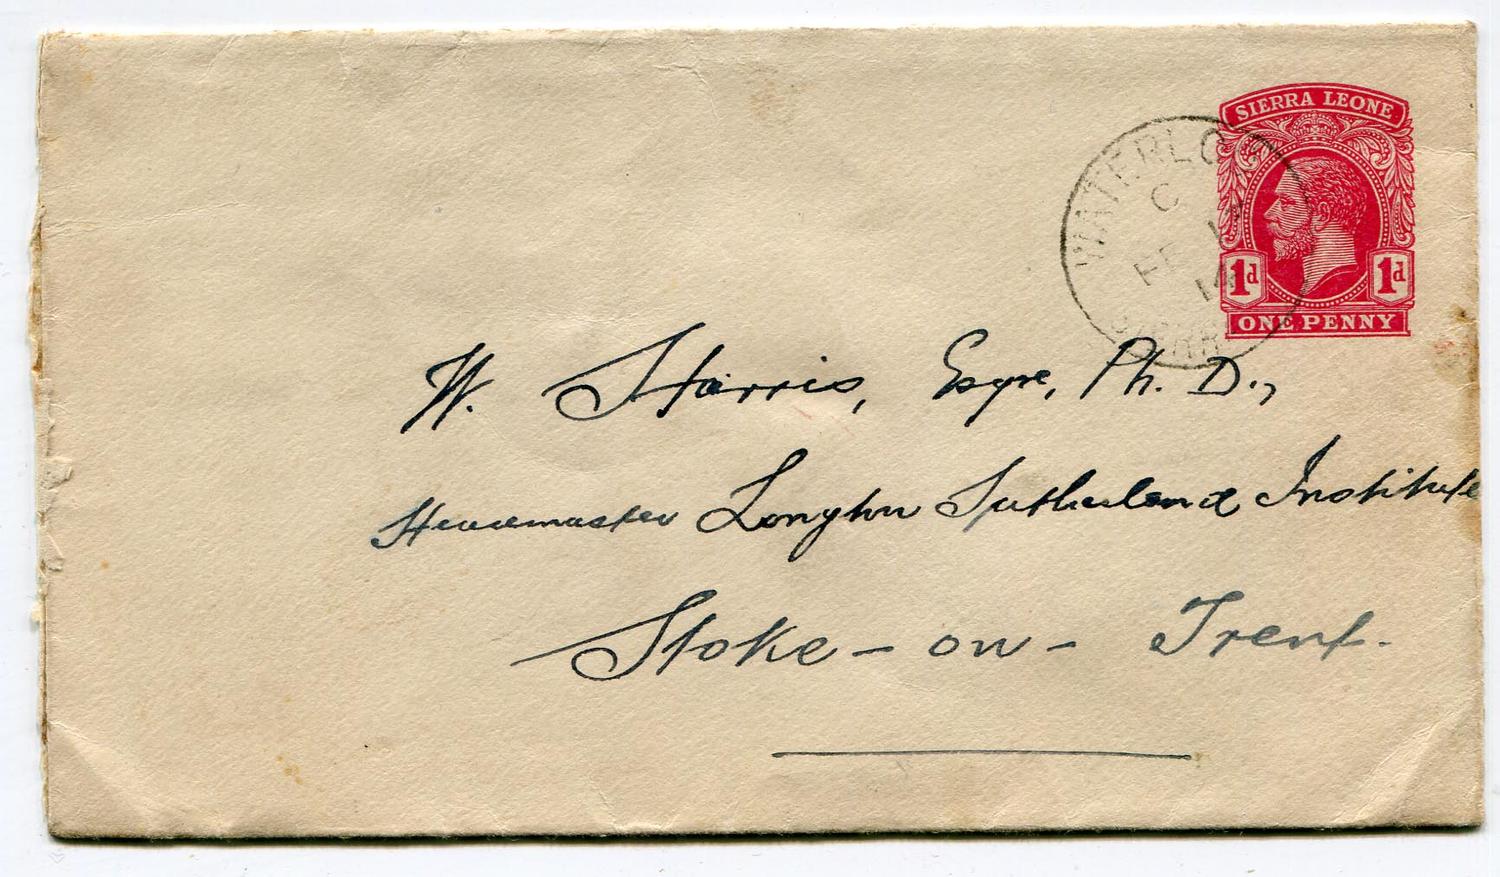 SIERRA LEONE
WATERLOO
C
FE 17
14
1d 1d
ONE PENNY
W. Harris, Esqre, Ph. D.,
Headmaster Longton Sutherland Institute
Stoke - on - Trent.